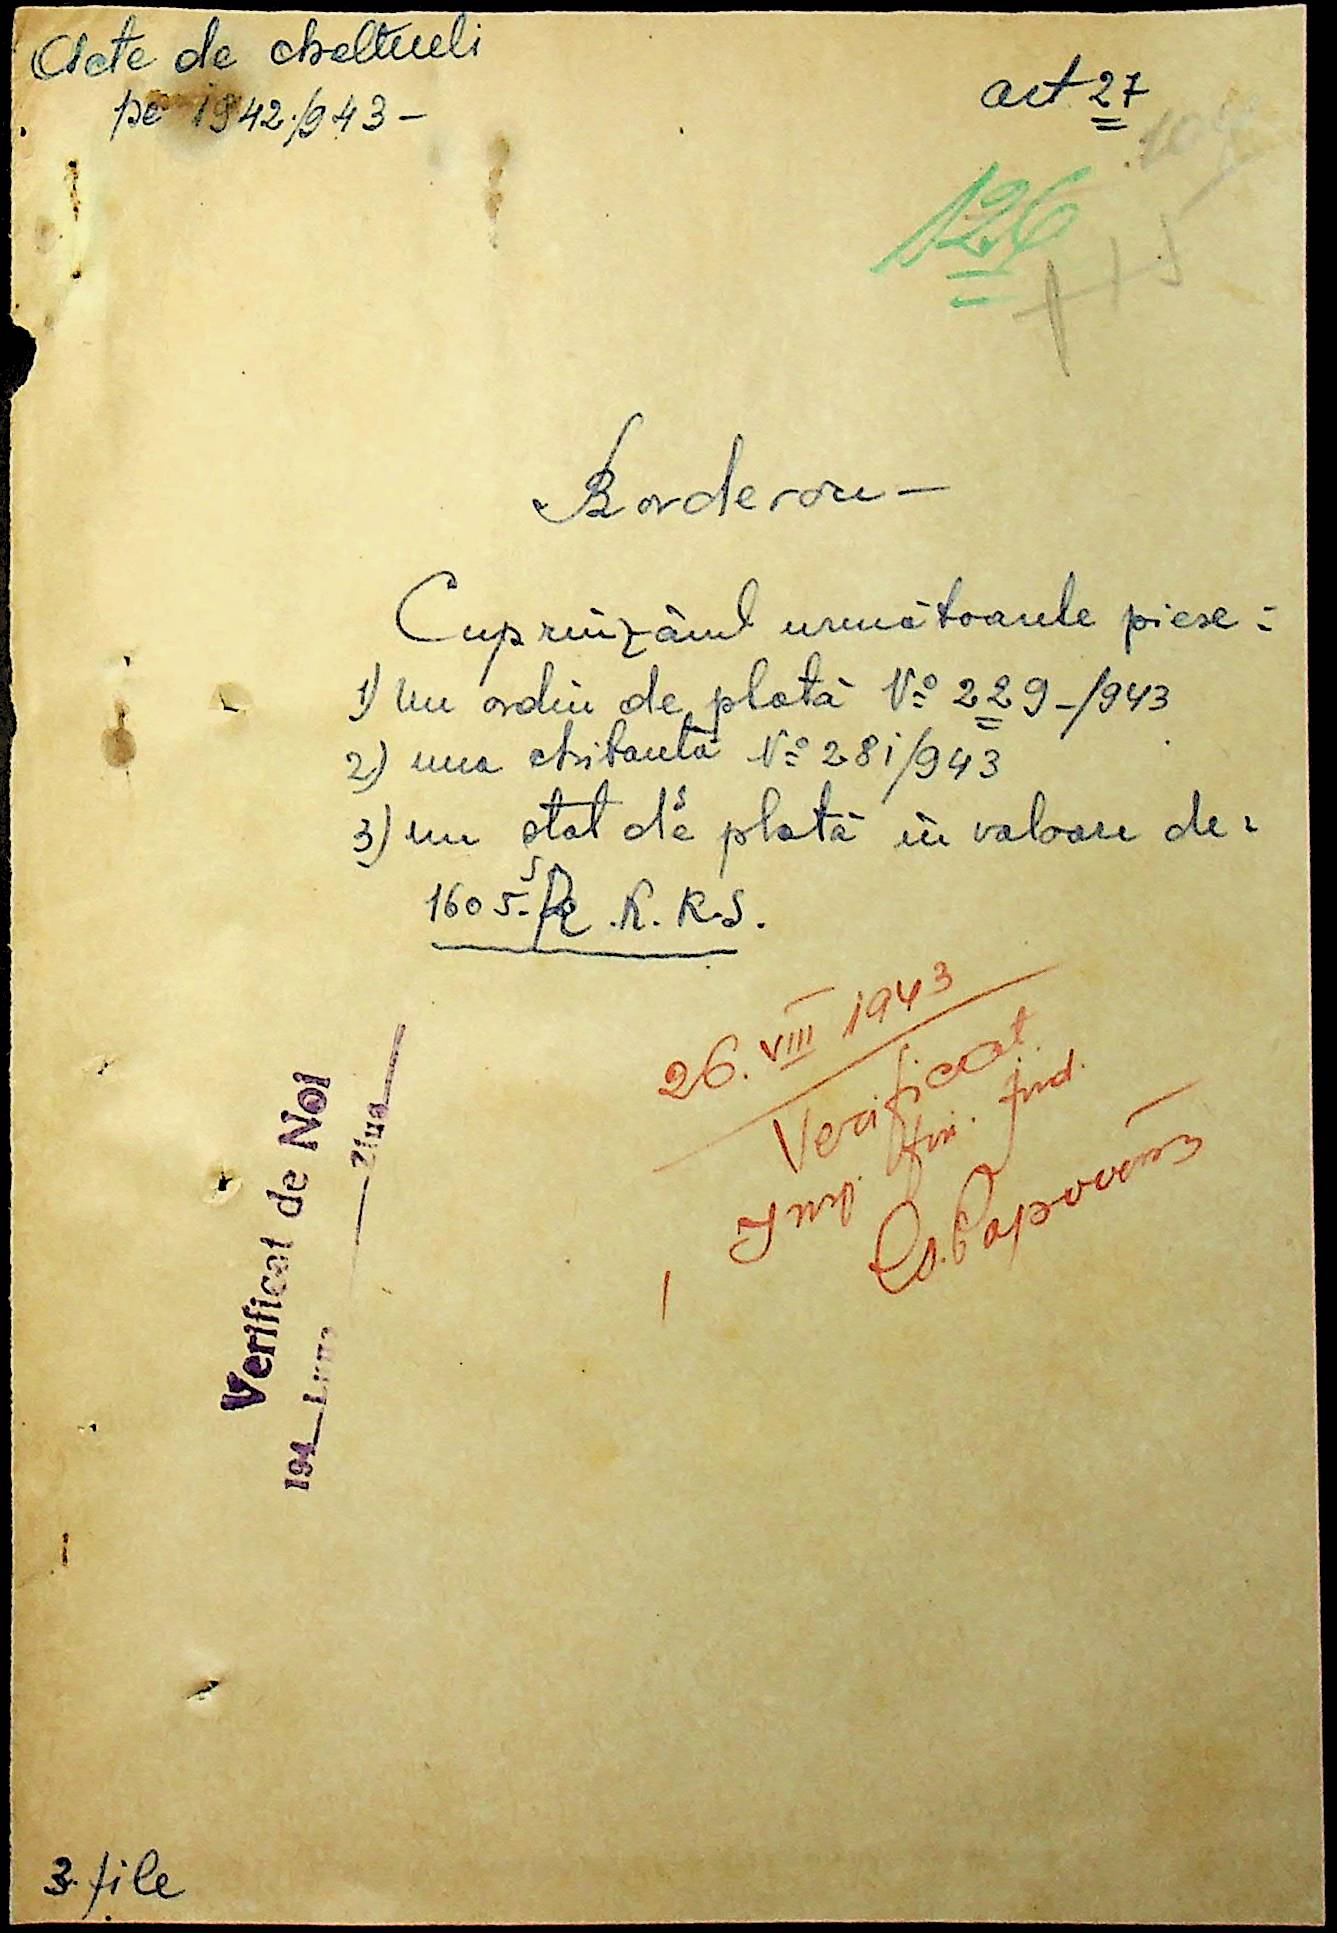 Acte de cheltueli
pe 1942/943 –
art 27
126
Borderou –
Cuprinzând următoarele piese :
1) un ordin de plată No 229-/943
2) una chitantă No 281/943
3) un stat de plată în valoare de :
1605 R.K.K.S.
26. VIII 1943
Verificat
Insp. fin. jud.
Verificat de Noi
194__Luna____Ziua__
3. file